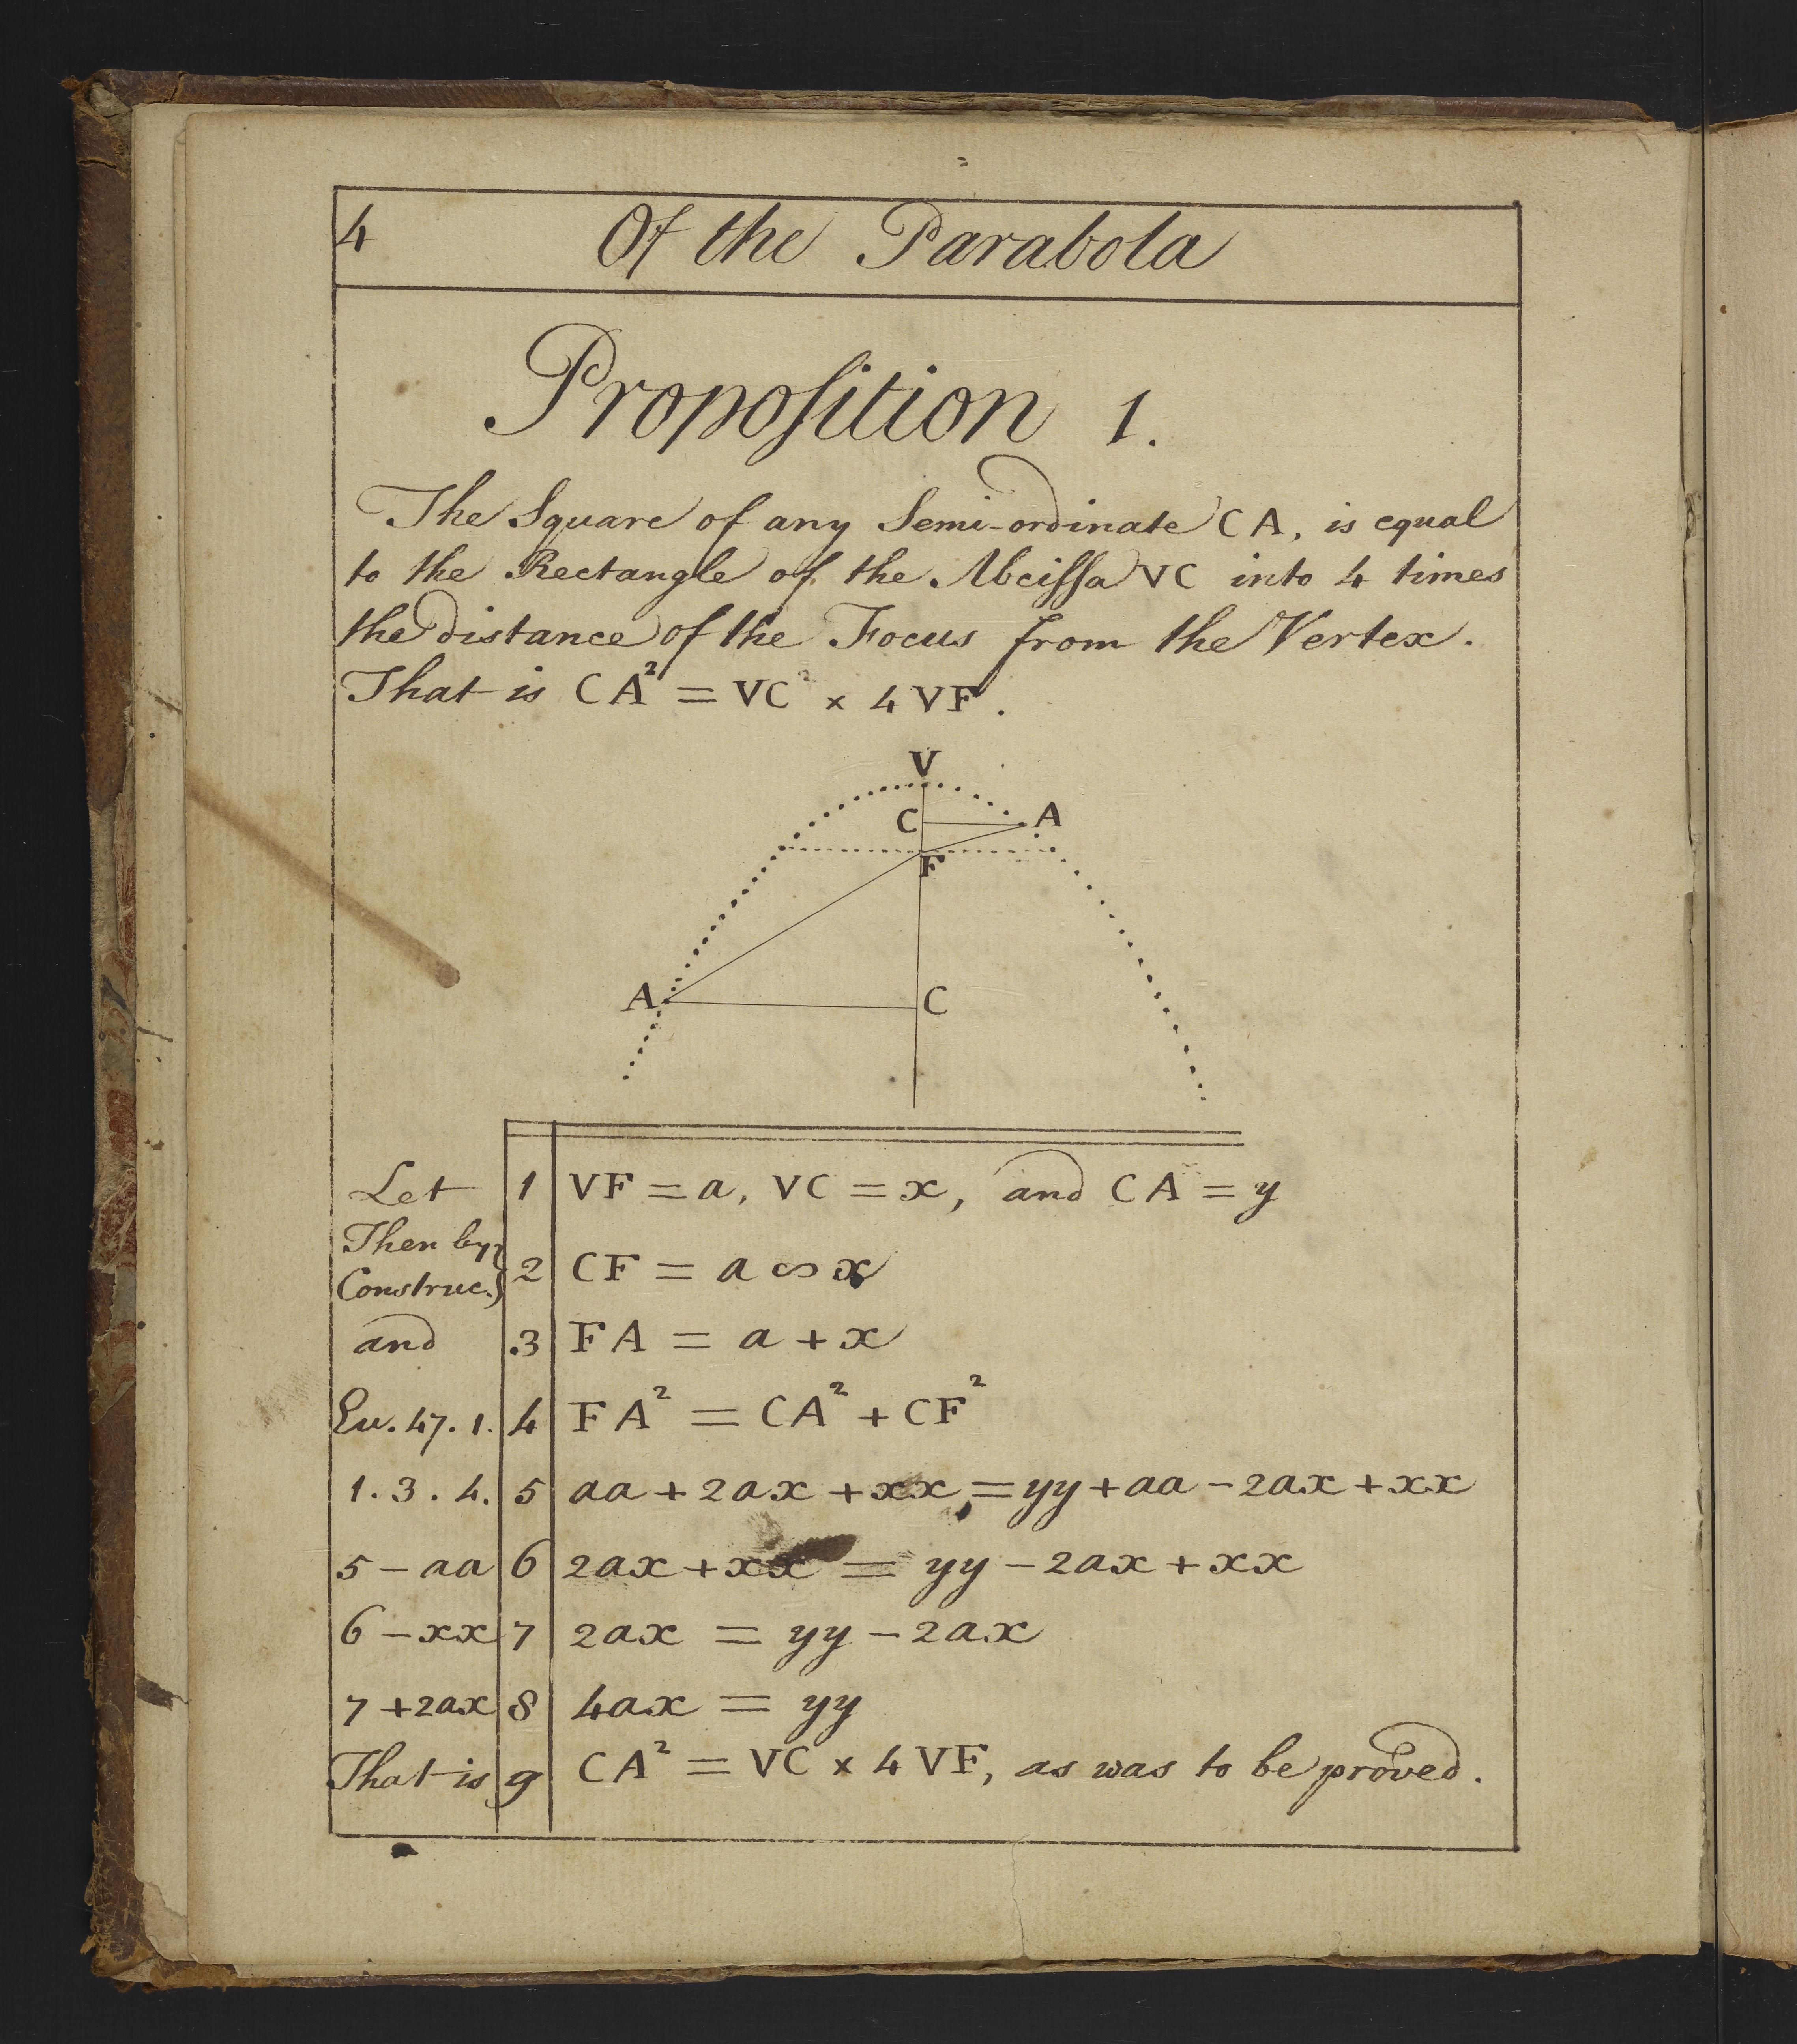 4 Of the Parabola
Propoſition 1.
The Square of any Semi-ordinate CA, is equal
to the Rectangle of the Abciſsa VC into 4 times
the distance of the Focus from the Vertex.
That is CA² = VC² × 4VF.
V
C A
F
A C
Let 1 VF = a, VC = x, and CA = y
Then by
Construc. } 2 CF = a ∽ x
and 3 FA = a + x
Eu. 47. 1. 4 FA² = CA² + CF²
1. 3. 4. 5 aa + 2ax + xx = yy + aa - 2ax + xx
5 - aa 6 2ax + xx = yy - 2ax + xx
6 - xx 7 2ax = yy - 2ax
7 + 2ax 8 4ax = yy
That is 9 CA² = VC × 4VF, as was to be proved.